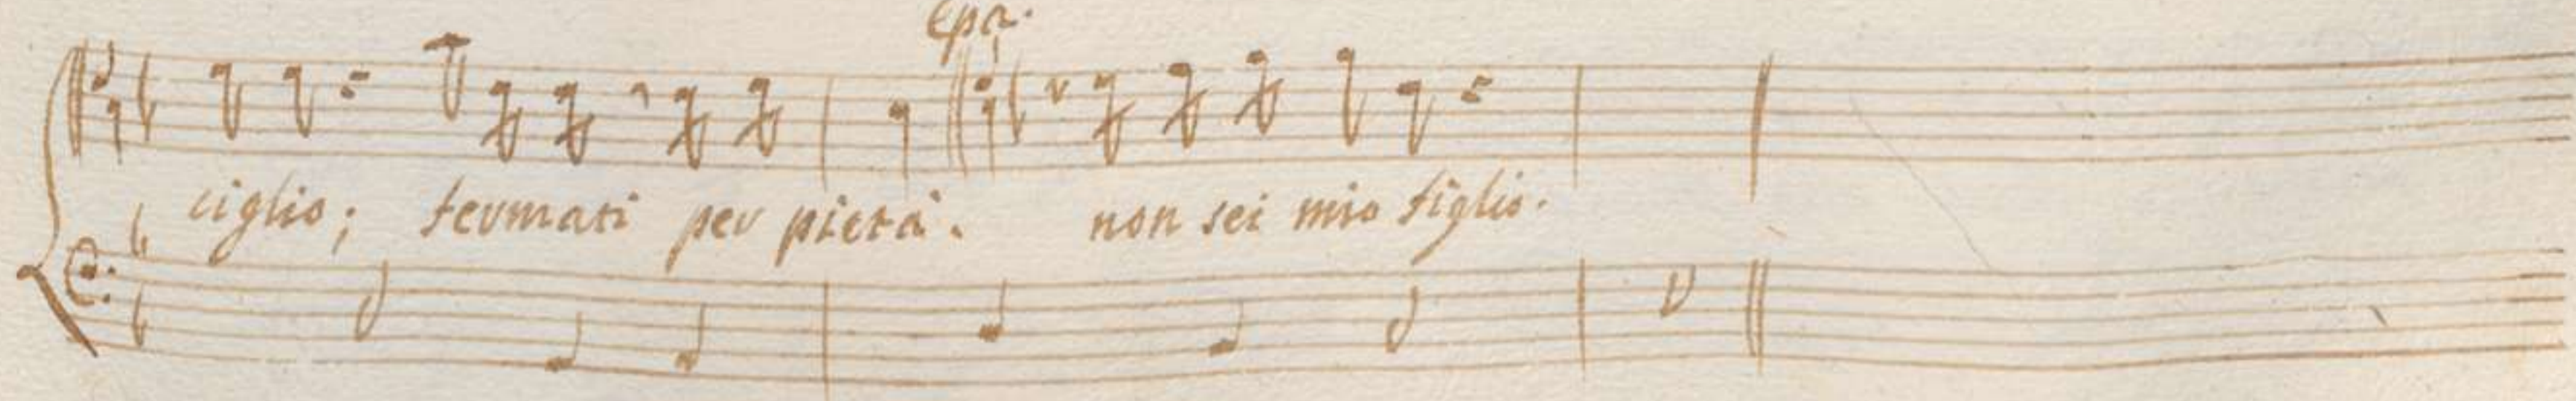 Epa.
ciglio; fermati per pietà. non sei mio figlio.